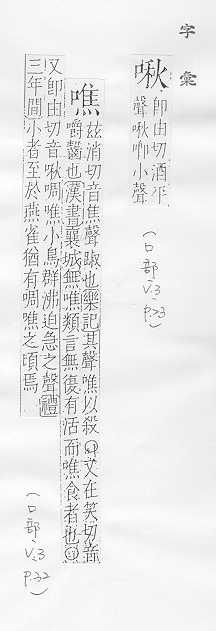 字彙
啾 卽由切酒平
聲啾啁小聲
(口部、V.3
P.23)
噍 茲消切音焦聲踧也樂記其聲噍以殺○又在笑切
嚼齧也漢書襄城無噍類言無復有活而噍食者也○
又卽由切音啾啁噍小鳥羣沸迫急之聲禮
三年間小者至於燕雀猶有啁噍之頃焉
(口部、V.3
P.32)